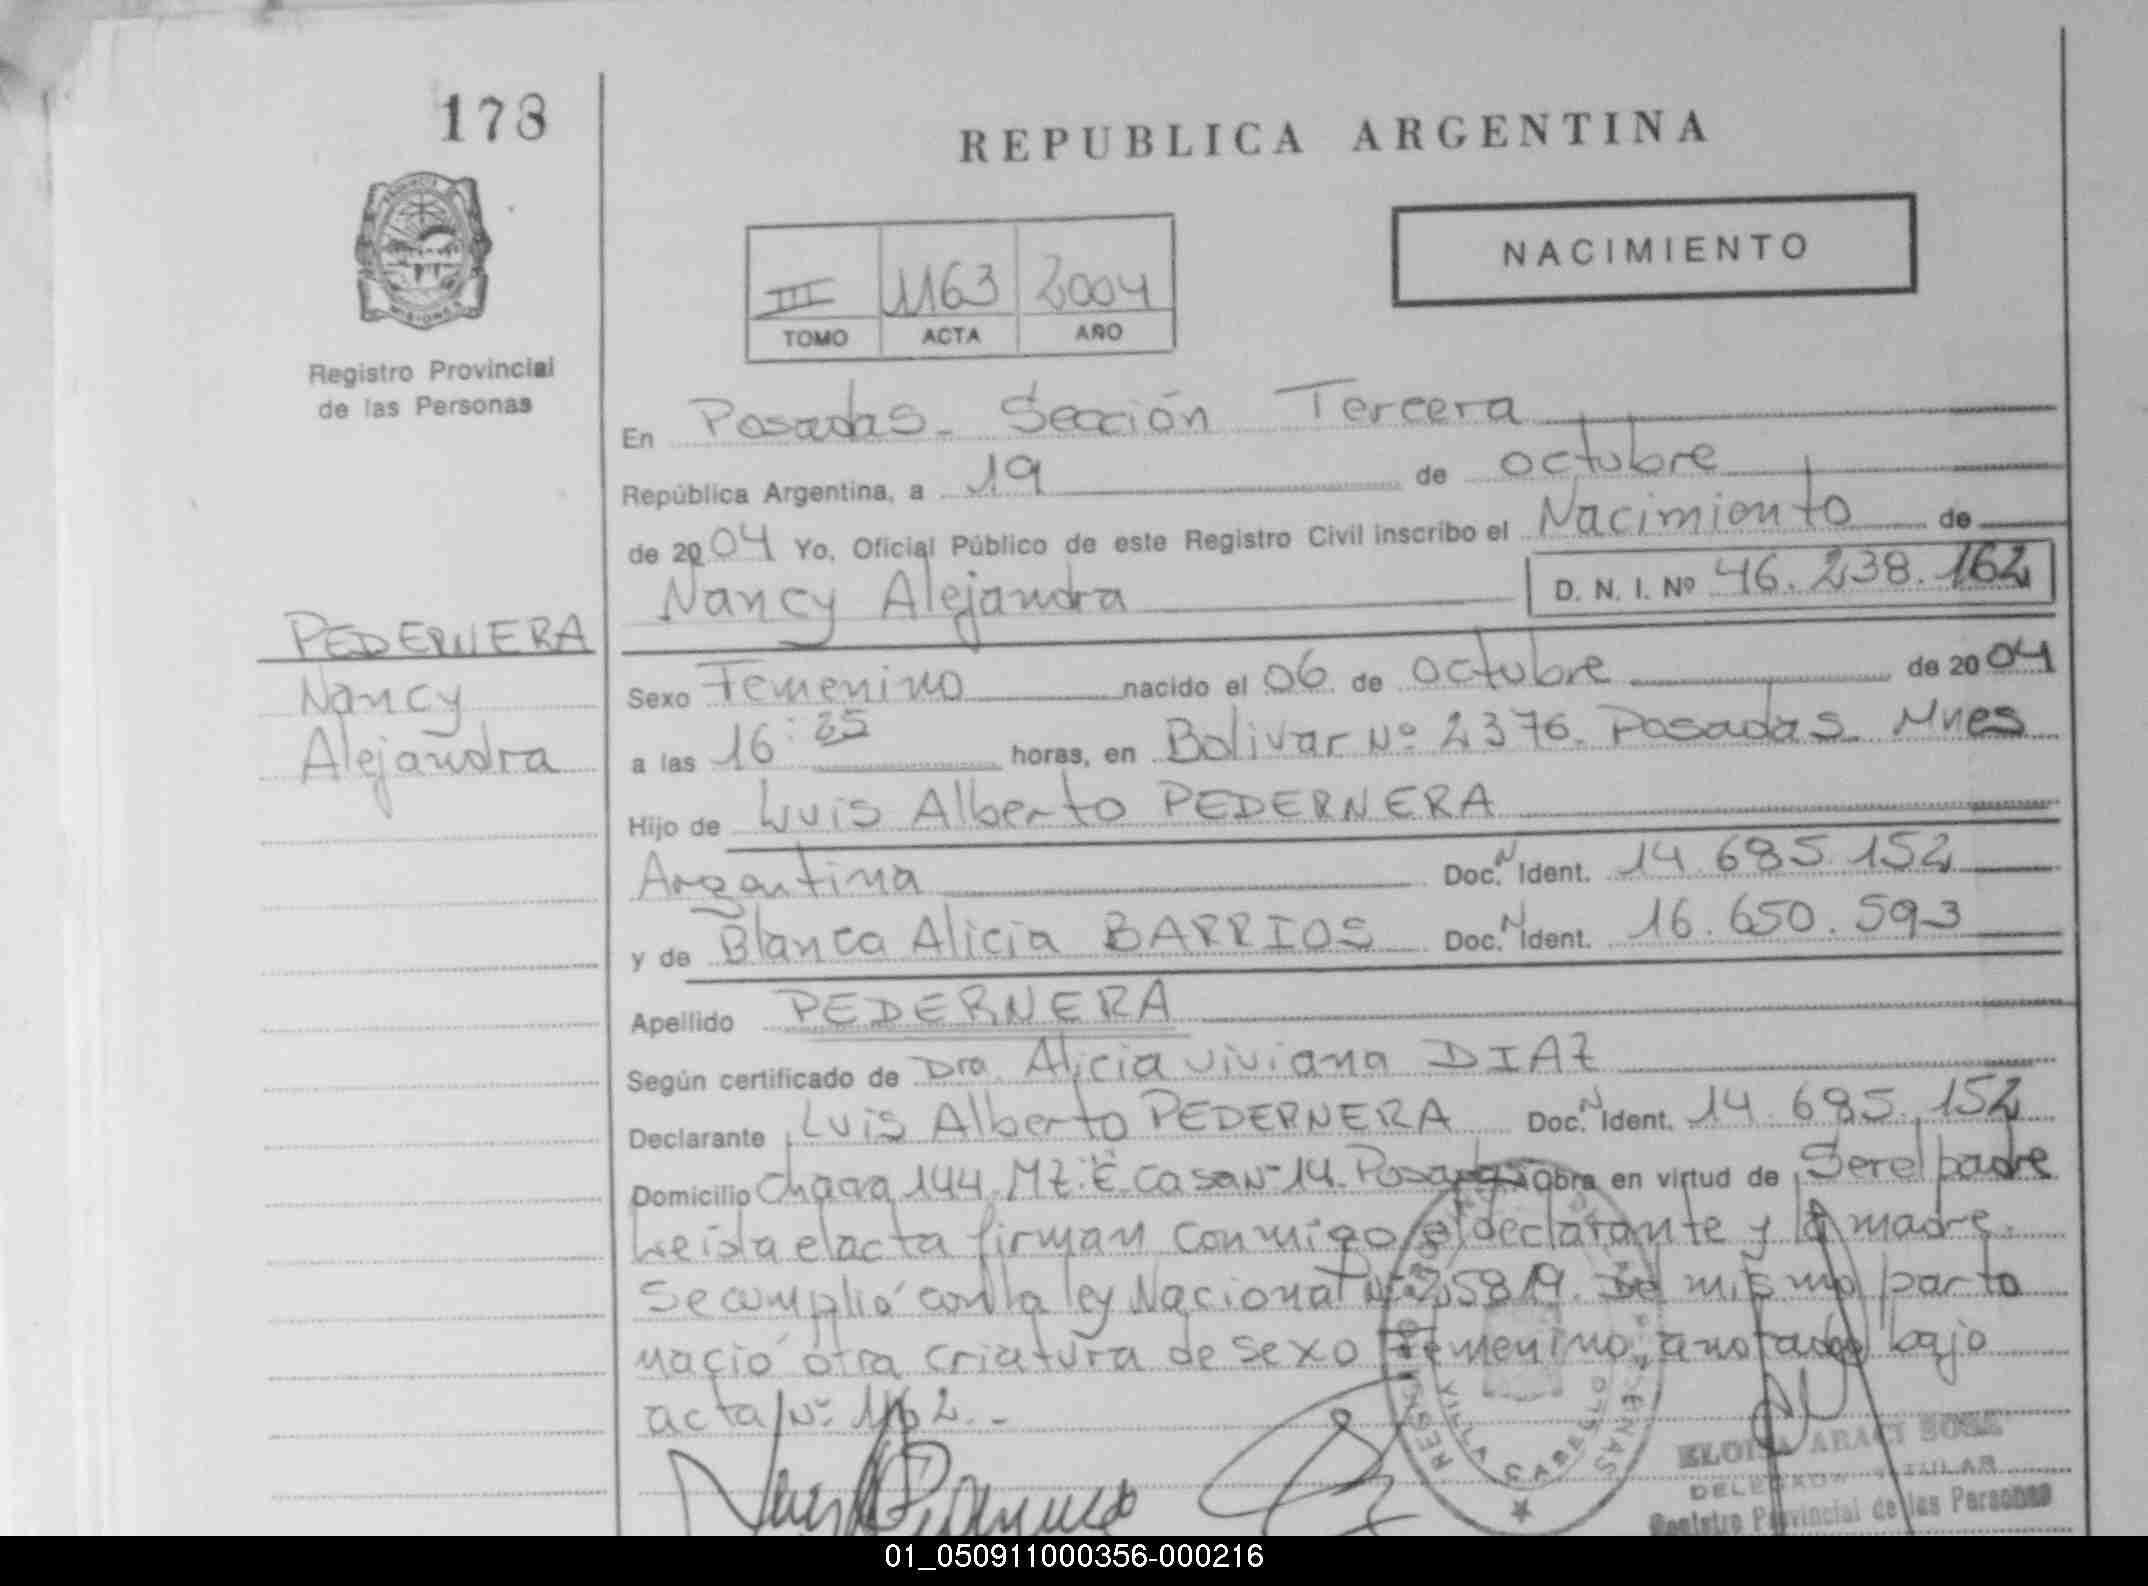 178
REPUBLICA ARGENTINA
NACIMIENTO
III 1163 2004
TOMO ACTA AÑO
Registro Provincial
de las Personas
En Posadas. Sección Tercera
República Argentina, a 19 de octubre
de 2004 Yo, Oficial Público de este Registro Civil inscribo el Nacimiento de
Nancy Alejandra D. N. I. Nº 46.238.162
PEDERNERA
Nancy
Alejandra
Sexo Femenino nacido el 06 de octubre de 2004
a las 16: horas, en Bolivar Nº 2376. Posadas. Mnes
Hijo de Luis Alberto PEDERNERA
Argentina Doc. N Ident. 14.685.152
y de Blanca Alicia BARRIOS Doc. N Ident. 16.650.593
Apellido PEDERNERA
Según certificado de Dra. Alicia Viviana DIAZ
Declarante Luis Alberto PEDERNERA Doc. N Ident. 14.685.152
Domicilio Chacra 144. MZ. "E". Casa Nº 14. Posadas Obra en virtud de Ser el padre
Leída el acta firman conmigo el declarante y la madre.
Se cumplió con la ley Nacional Nº 25819. Del mismo parto
nació otra criatura de sexo Femenino, anotada bajo
acta Nº 1162.-
VILLA CABELLO
ELOISA ARACI
DELEGADA TITULAR
Registro Provincial de las Personas
01_050911000356-000216